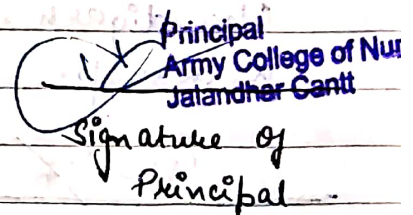 Principal
Army College of Nur
Jalandhar Cantt
Signature of
Principal